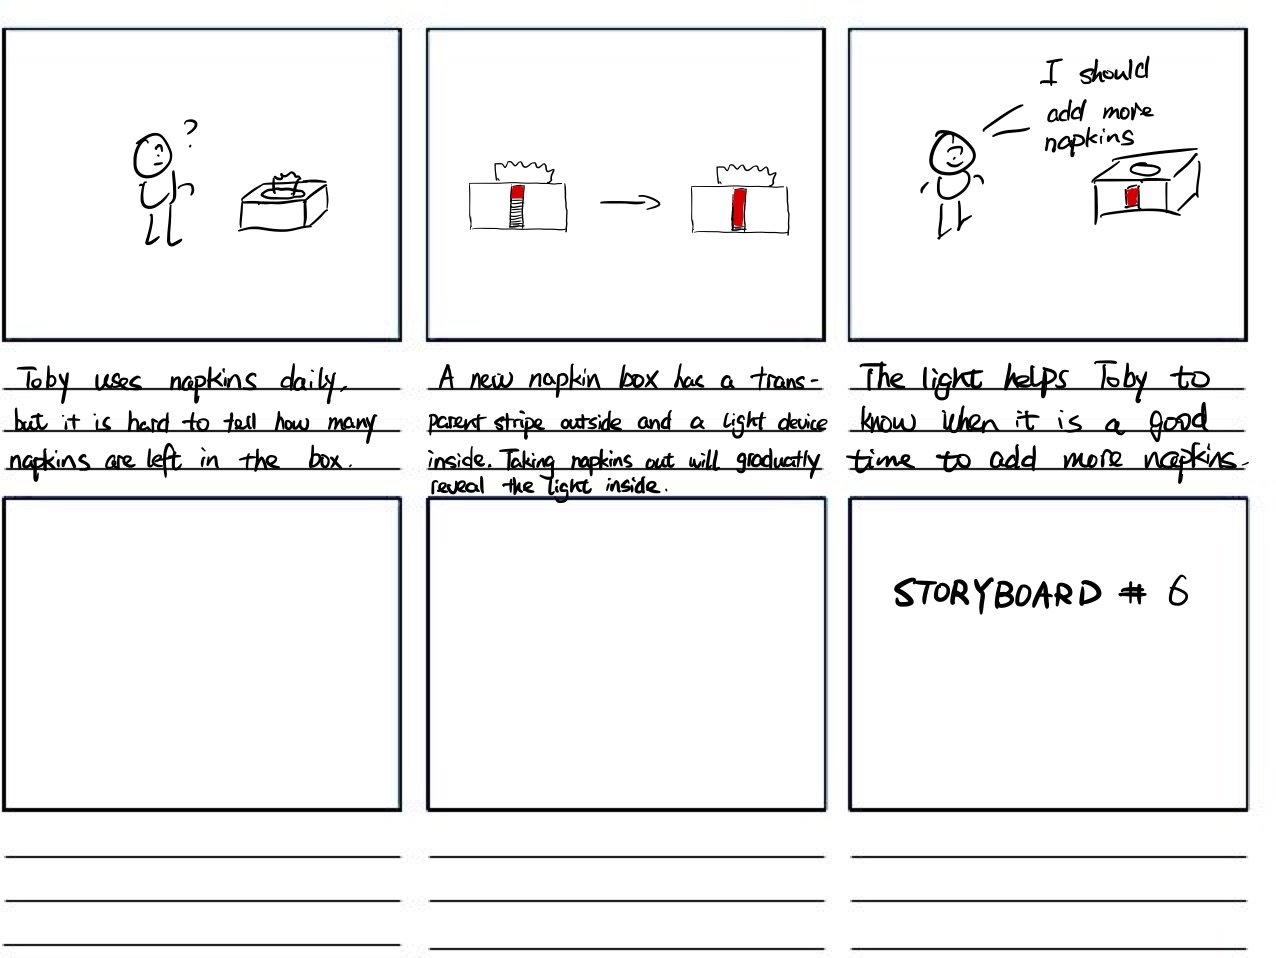 ?
I should
add more
napkins
Toby uses napkins daily,
but it is hard to tell how many
napkins are left in the box.
A new napkin box has a trans-
parent stripe outside and a light device
inside. Taking napkins out will gradually
reveal the light inside.
The light helps Toby to
know when it is a good
time to add more napkins.
STORYBOARD # 6